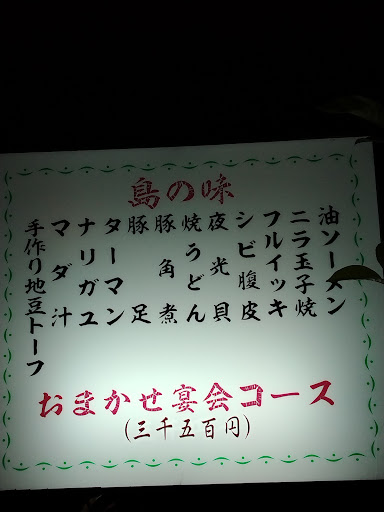 島の味
油ソーメン
ニラ玉子焼
フルイッキ
シビ腹皮
夜光貝
焼うどん
豚角煮
豚足
ターマン
ナリガユ
マダ汁
手作り地豆トーフ
おまかせ宴会コース
(三千五百円)